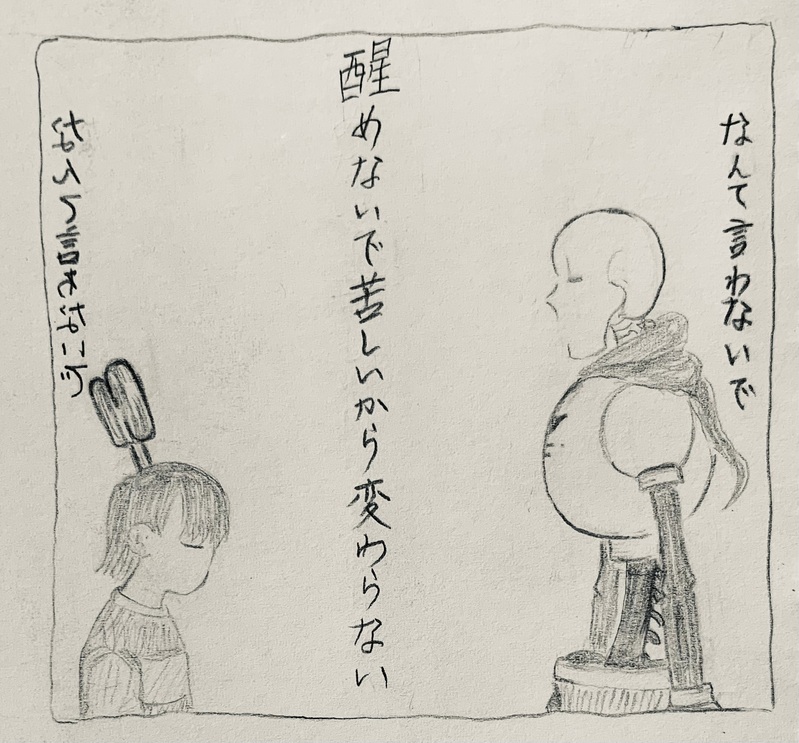 なんて言わないで
醒めないで苦しいから変わらない
なんて言わないで